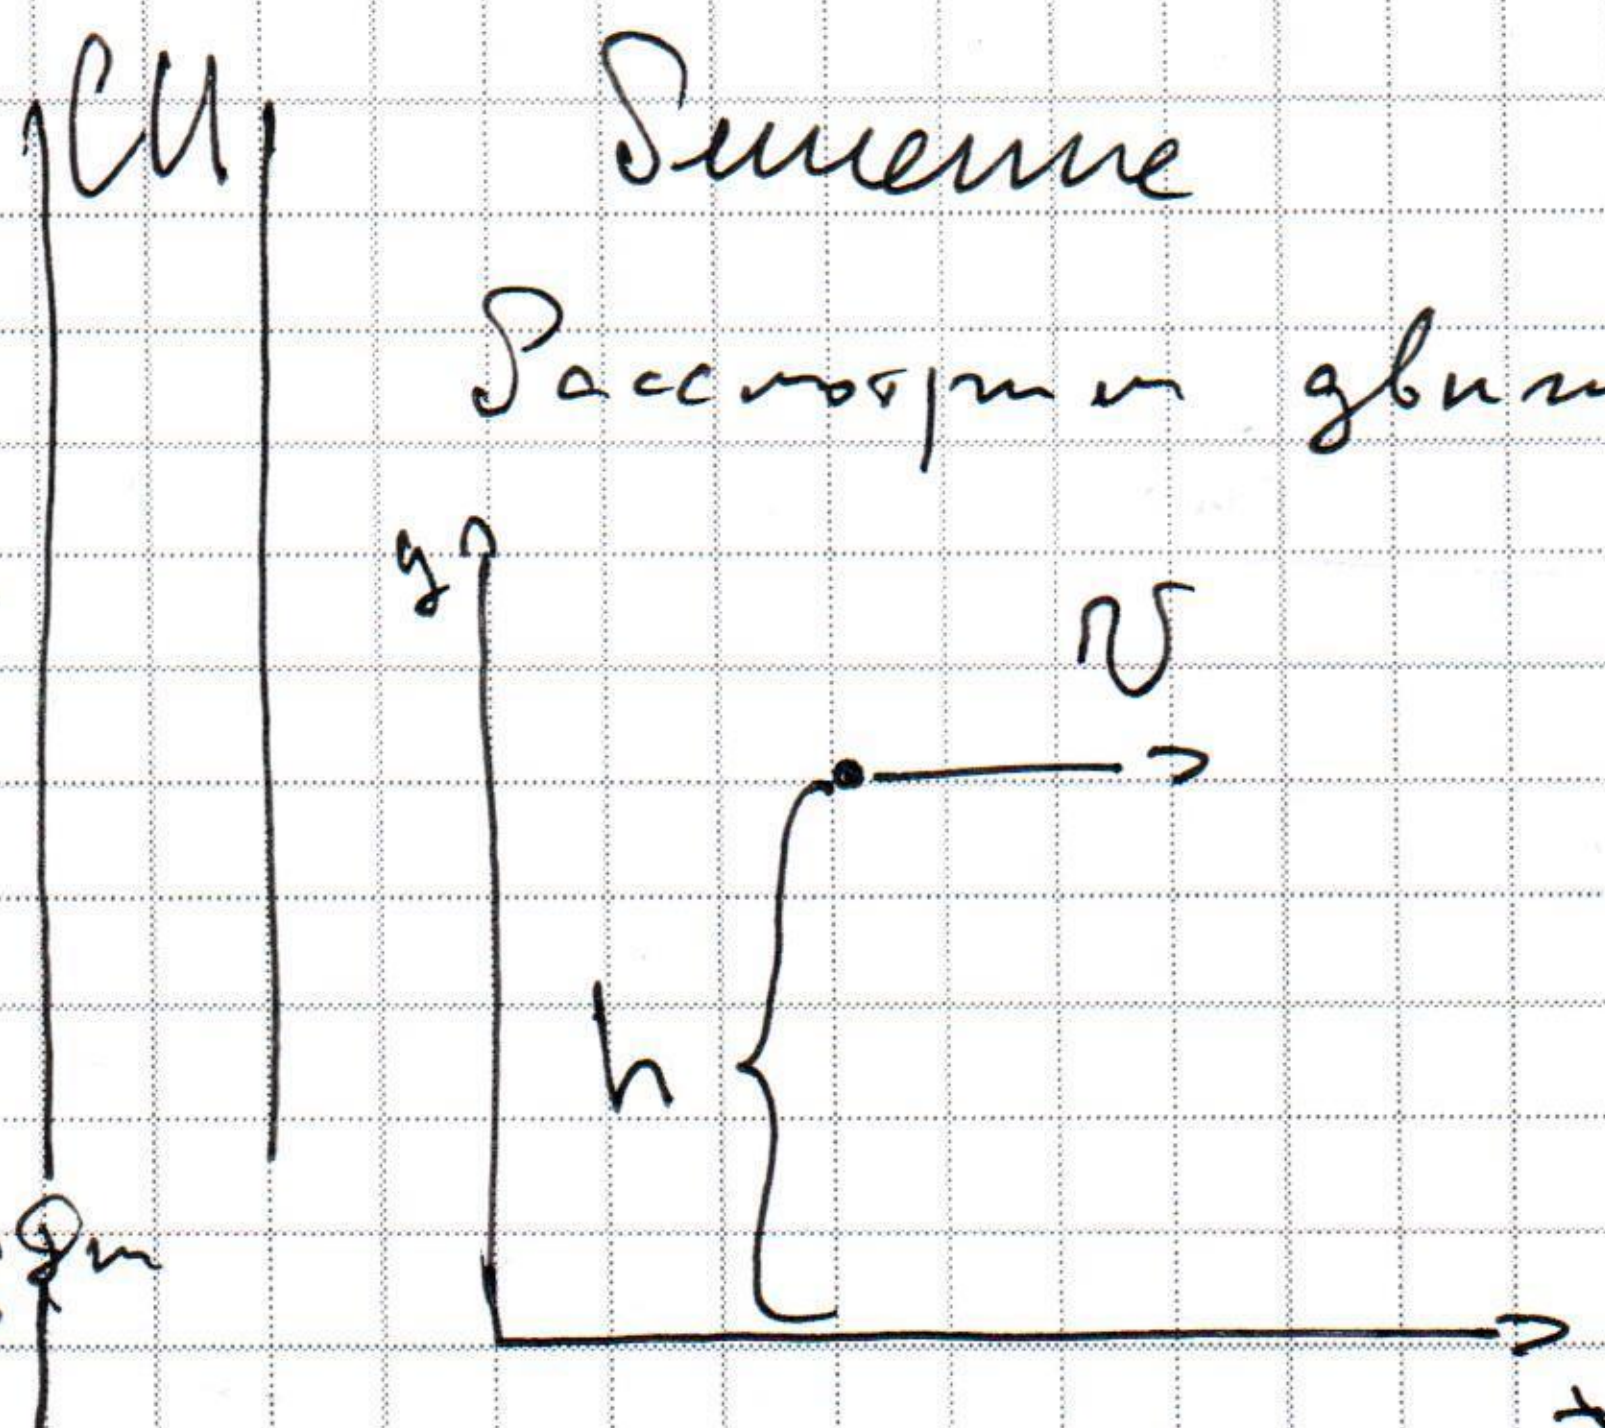 СИ Решение
Рассмотрим движ
y
v
h
x